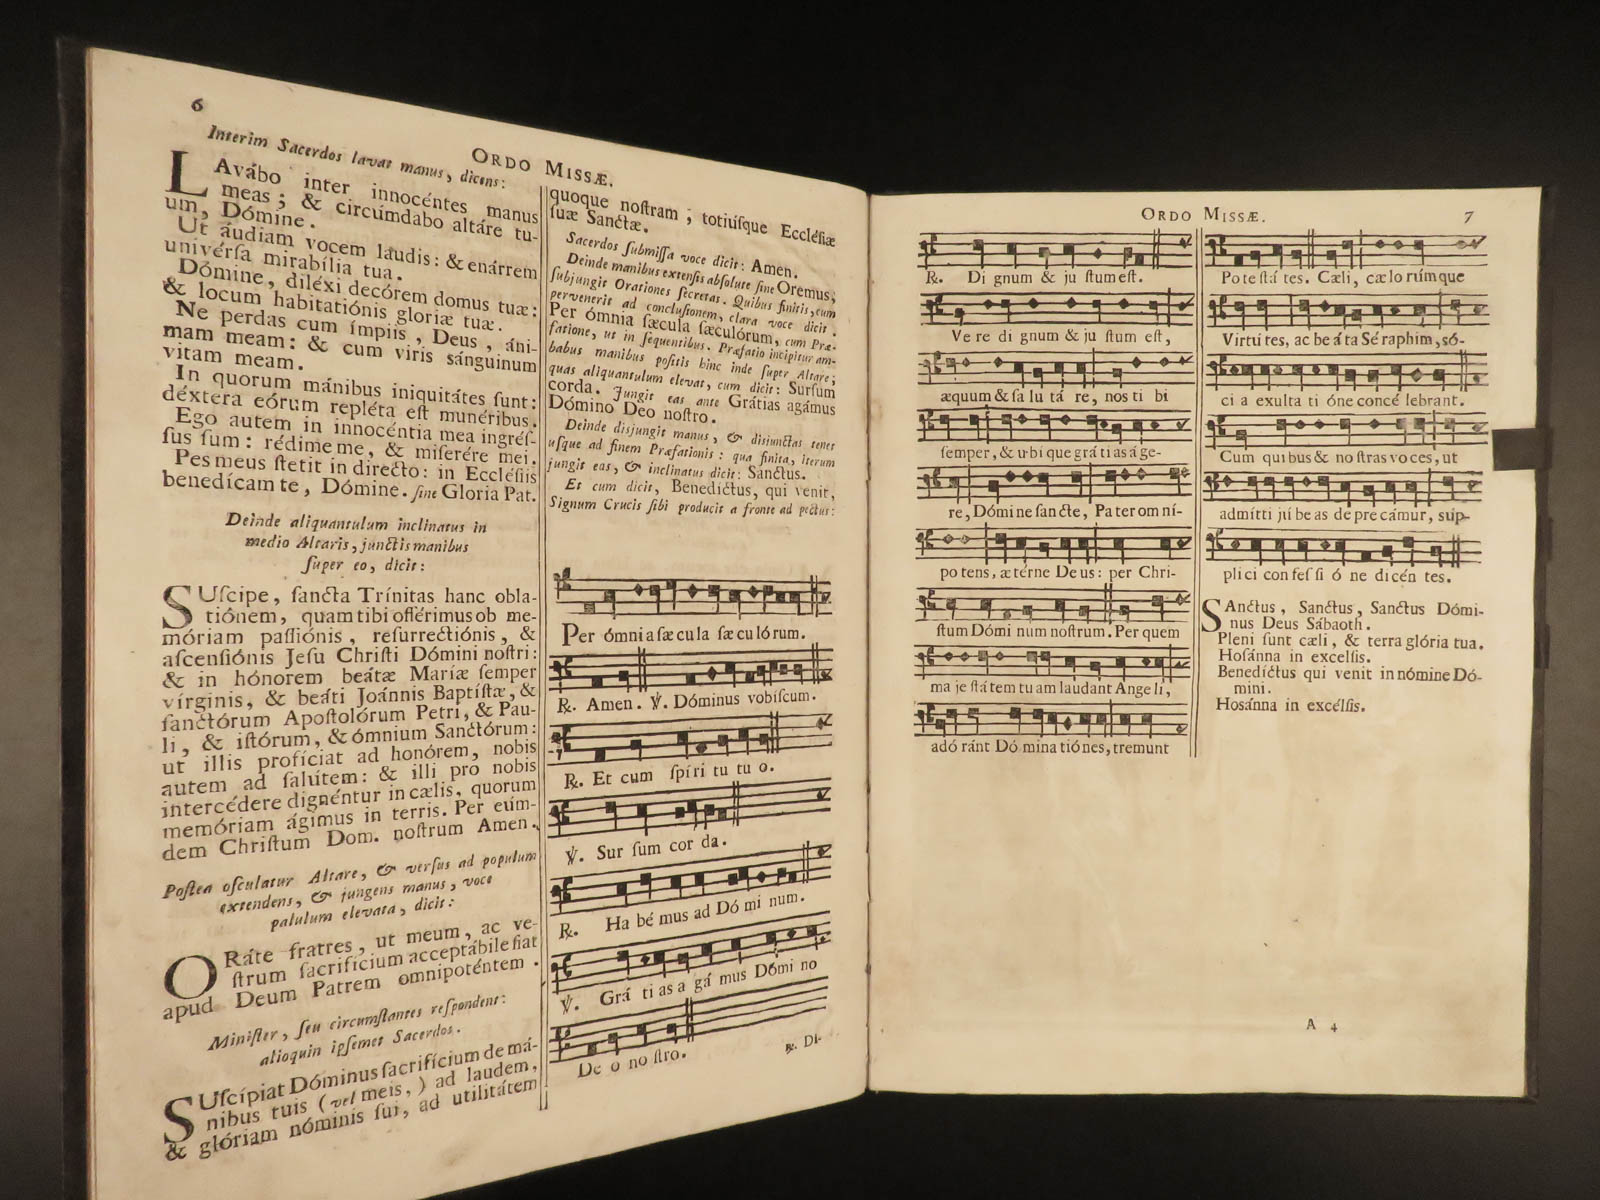 6
ORDO MISSÆ.
Interim Sacerdos lavat manus, dicens:
LAvábo inter innocéntes manus
meas; & circúmdabo altáre tu-
um, Dómine.
Ut áudiam vocem laudis: & enárrem
univérsa mirabília tua.
Dómine, diléxi decórem domus tuæ:
& locum habitatiónis gloriæ tuæ.
Ne perdas cum ímpiis, Deus, áni-
mam meam: & cum viris sánguinum
vitam meam.
In quorum mánibus iniquitátes sunt:
déxtera eórum repléta est munéribus.
Ego autem in innocéntia mea ingrés-
sus sum: rédime me, & miserére mei.
Pes meus stetit in directo: in Ecclésiis
benedícam te, Dómine. sine Gloria Pat.
Deinde aliquantulum inclinatus in
medio Altaris, junctis manibus
super eo, dicit:
SUscipe, sancta Trínitas hanc obla-
tiónem, quam tibi offérimus ob me-
móriam passiónis, resurrectiónis, &
ascensiónis Jesu Christi Dómini nostri:
& in hónorem beátæ Maríæ semper
vírginis, & beáti Joánnis Baptístæ, &
sanctórum Apostolórum Petri, & Pau-
li, & istórum, & ómnium Sanctórum:
ut illis profíciat ad honórem, nobis
autem ad salútem: & illi pro nobis
intercédere dignéntur in cælis, quorum
memóriam ágimus in terris. Per eúm-
dem Christum Dom. nostrum Amen.
Postea osculatur Altare, & versus ad populum
extendens, & jungens manus, voce
palulum elevata, dicit:
ORáte fratres, ut meum, ac ve-
strum sacrifícium acceptábile fiat
apud Deum Patrem omnipoténtem.
Minister, seu circumstantes respondent:
alioquin ipsemet Sacerdos.
SUscípiat Dóminus sacrifícium de má-
nibus tuis (vel meis,) ad laudem,
& glóriam nóminis sui, ad utilitátem
quoque nostram; totiúsque Ecclésiæ
suæ Sanctæ.
Sacerdos submissa voce dicit: Amen.
Deinde manibus extensis absolute sine Oremus,
subjungit Orationes secretas. Quibus finitis, cum
pervenerit ad conclusionem, clara voce dicit.
Per ómnia sæcula sæculórum, cum Præ-
fatione, ut in sequentibus. Præfatio incipitur am-
babus manibus positis hinc inde super Altare;
quas aliquantulum elevat, cum dicit: Sursum
corda. Jungit eas ante Grátias agámus
Dómino Deo nostro.
Deinde disjungit manus, & disjunctas tenet
usque ad finem Præfationis: qua finita, iterum
jungit eas, & inclinatus dicit: Sanctus.
Et cum dicit, Benedíctus, qui venit,
Signum Crucis sibi producit a fronte ad pectus:
Per ómnia sæ cu la sæ cu ló rum.
℟. Amen. ℣. Dóminus vobíscum.
℟. Et cum spí ri tu tu o.
℣. Sur sum cor da.
℟. Ha bé mus ad Dó mi num.
℣. Grá ti as a gá mus Dómi no
De o no stro.
℟. Di-
ORDO MISSÆ.
7
℟. Di gnum & ju stum est.
Ve re di gnum & ju stum est,
æquum & sa lu tá re, nos ti bi
semper, & u bi que grá ti as á ge-
re, Dómi ne sancte, Pa ter om ní-
po tens, æ térne De us: per Chri-
stum Dómi num nostrum. Per quem
ma je stá tem tu am laudant Ange li,
adó ránt Dó mina tió nes, tremunt
Po te stá tes. Cæli, cæ lo rúmque
Virtú tes, ac be á ta Sé raphim, só-
ci a exulta ti óne concé lebrant.
Cum qui bus & no stras vo ces, ut
admítti jú be as de pre cámur, sup-
plici con fes si ó ne dicén tes.
SAnctus, Sanctus, Sanctus Dómi-
nus Deus Sábaoth.
Pleni sunt cæli, & terra glória tua.
Hosánna in excelsis.
Benedíctus qui venit in nómine Dó-
mini.
Hosánna in excélsis.
A 4